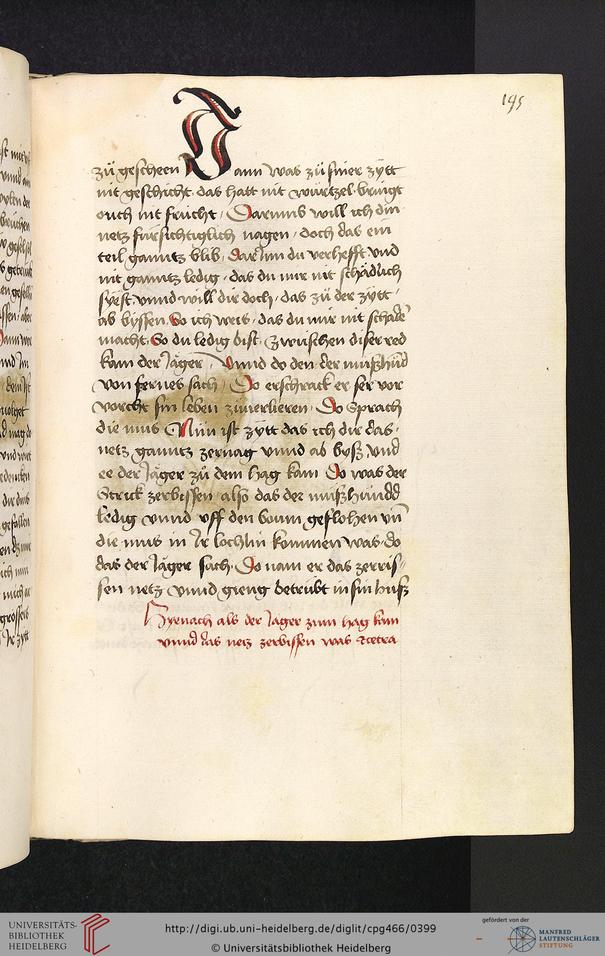 195
zu gescheen Dann was zu siner zytt
nit geschicht · das hatt nit würtzel · bringt
ouch nit frucht · Darumb will ich din
netz fürsichtiglich nagen · doch das ein
teil ganntz blib · dar Inn du verhefft vnd
nit ganntz ledig · das du mir nit schädlich
syest vnnd will dir doch · das zu der zytt ·
ab byssen · So ich weis · das du mir nit schade
macht · So du ledig bist · Zwuischen diser red
kam der Jäger · Vnnd do den der mußhünd
von fernes sach · Do erschrack er ser vor
vorcht sin leben zuuerlieren · Do sprach
die mus Nun ist zytt das ich dir das ·
netz ganntz zernag vnnd ab byß vnd
ee der Jäger zu dem hag kam Do was der
Strick zerbissen also das der mußhündd
ledig vnnd vff den boum geflohen vn
die mus in Ir lochlin kommen was · do
das der Jäger sach · Do nam er das zerris-
sen netz vnnd gieng betrübt in sin huß
Hyenach als der Jäger zum hag kam
vnnd das netz zerbissen was etcetra
UNIVERSITÄTS-
BIBLIOTHEK
HEIDELBERG
http://digi.ub.uni-heidelberg.de/diglit/cpg466/0399
© Universitätsbibliothek Heidelberg
gefördert von der
MANFRED
LAUTENSCHLÄGER
STIFTUNG